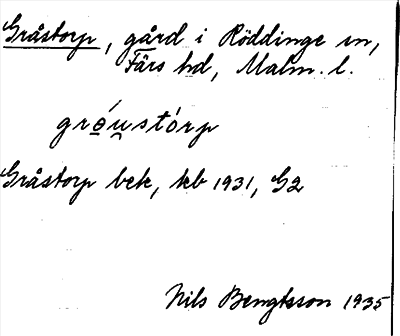 Gråstorp, gård i Röddinge sn,
Färs hd, Malm. l.
gro̱u̯stórp
Gråstorp bek, kb 1931, G2
Nils Bengtsson 1935